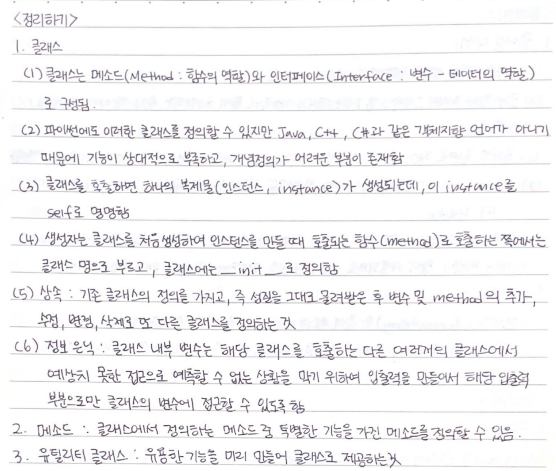 <정리하기>
1. 클래스
(1) 클래스는 메소드(Method : 함수의 역할)와 인터페이스(Interface : 변수 - 데이터의 역할)
로 구성됨.
(2) 파이썬에도 이러한 클래스를 정의할 수 있지만 Java, C++, C#과 같은 객체지향 언어가 아니기
때문에 기능이 상대적으로 부족하고, 개념정의가 어려운 부분이 존재함
(3) 클래스를 호출하면 하나의 복제물(인스턴스, instance)가 생성되는데, 이 instance를
self로 명명함
(4) 생성자는 클래스를 처음 생성하여 인스턴스를 만들 때 호출되는 함수(method)로 호출하는 쪽에서는
클래스 명으로 부르고, 클래스에는 __init__로 정의함
(5) 상속 : 기존 클래스의 정의를 가지고, 즉 성질을 그대로 물려받은 후 변수 및 method의 추가,
수정, 변경, 삭제로 또 다른 클래스를 정의하는 것
(6) 정보 은닉 : 클래스 내부 변수는 해당 클래스를 호출하는 다른 여러개의 클래스에서
예상치 못한 접근으로 예측할 수 없는 상황을 막기 위하여 입출력을 만들어서 해당 입출력
부분으로만 클래스의 변수에 접근할 수 있도록 함
2. 메소드 : 클래스에서 정의하는 메소드 중 특별한 기능을 가진 메소드를 정의할 수 있음.
3. 유틸리티 클래스 : 유용한 기능을 미리 만들어 클래스로 제공하는 것